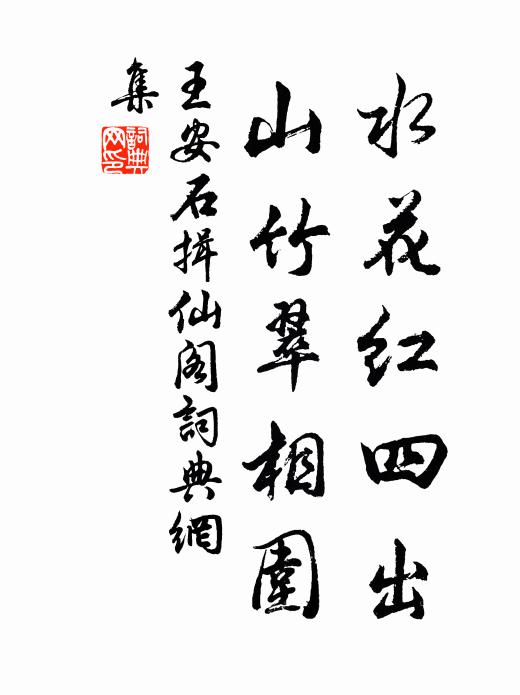 水花红四出
山竹翠相圍
王安石揖仙阁詞典網
集
詞典
网印